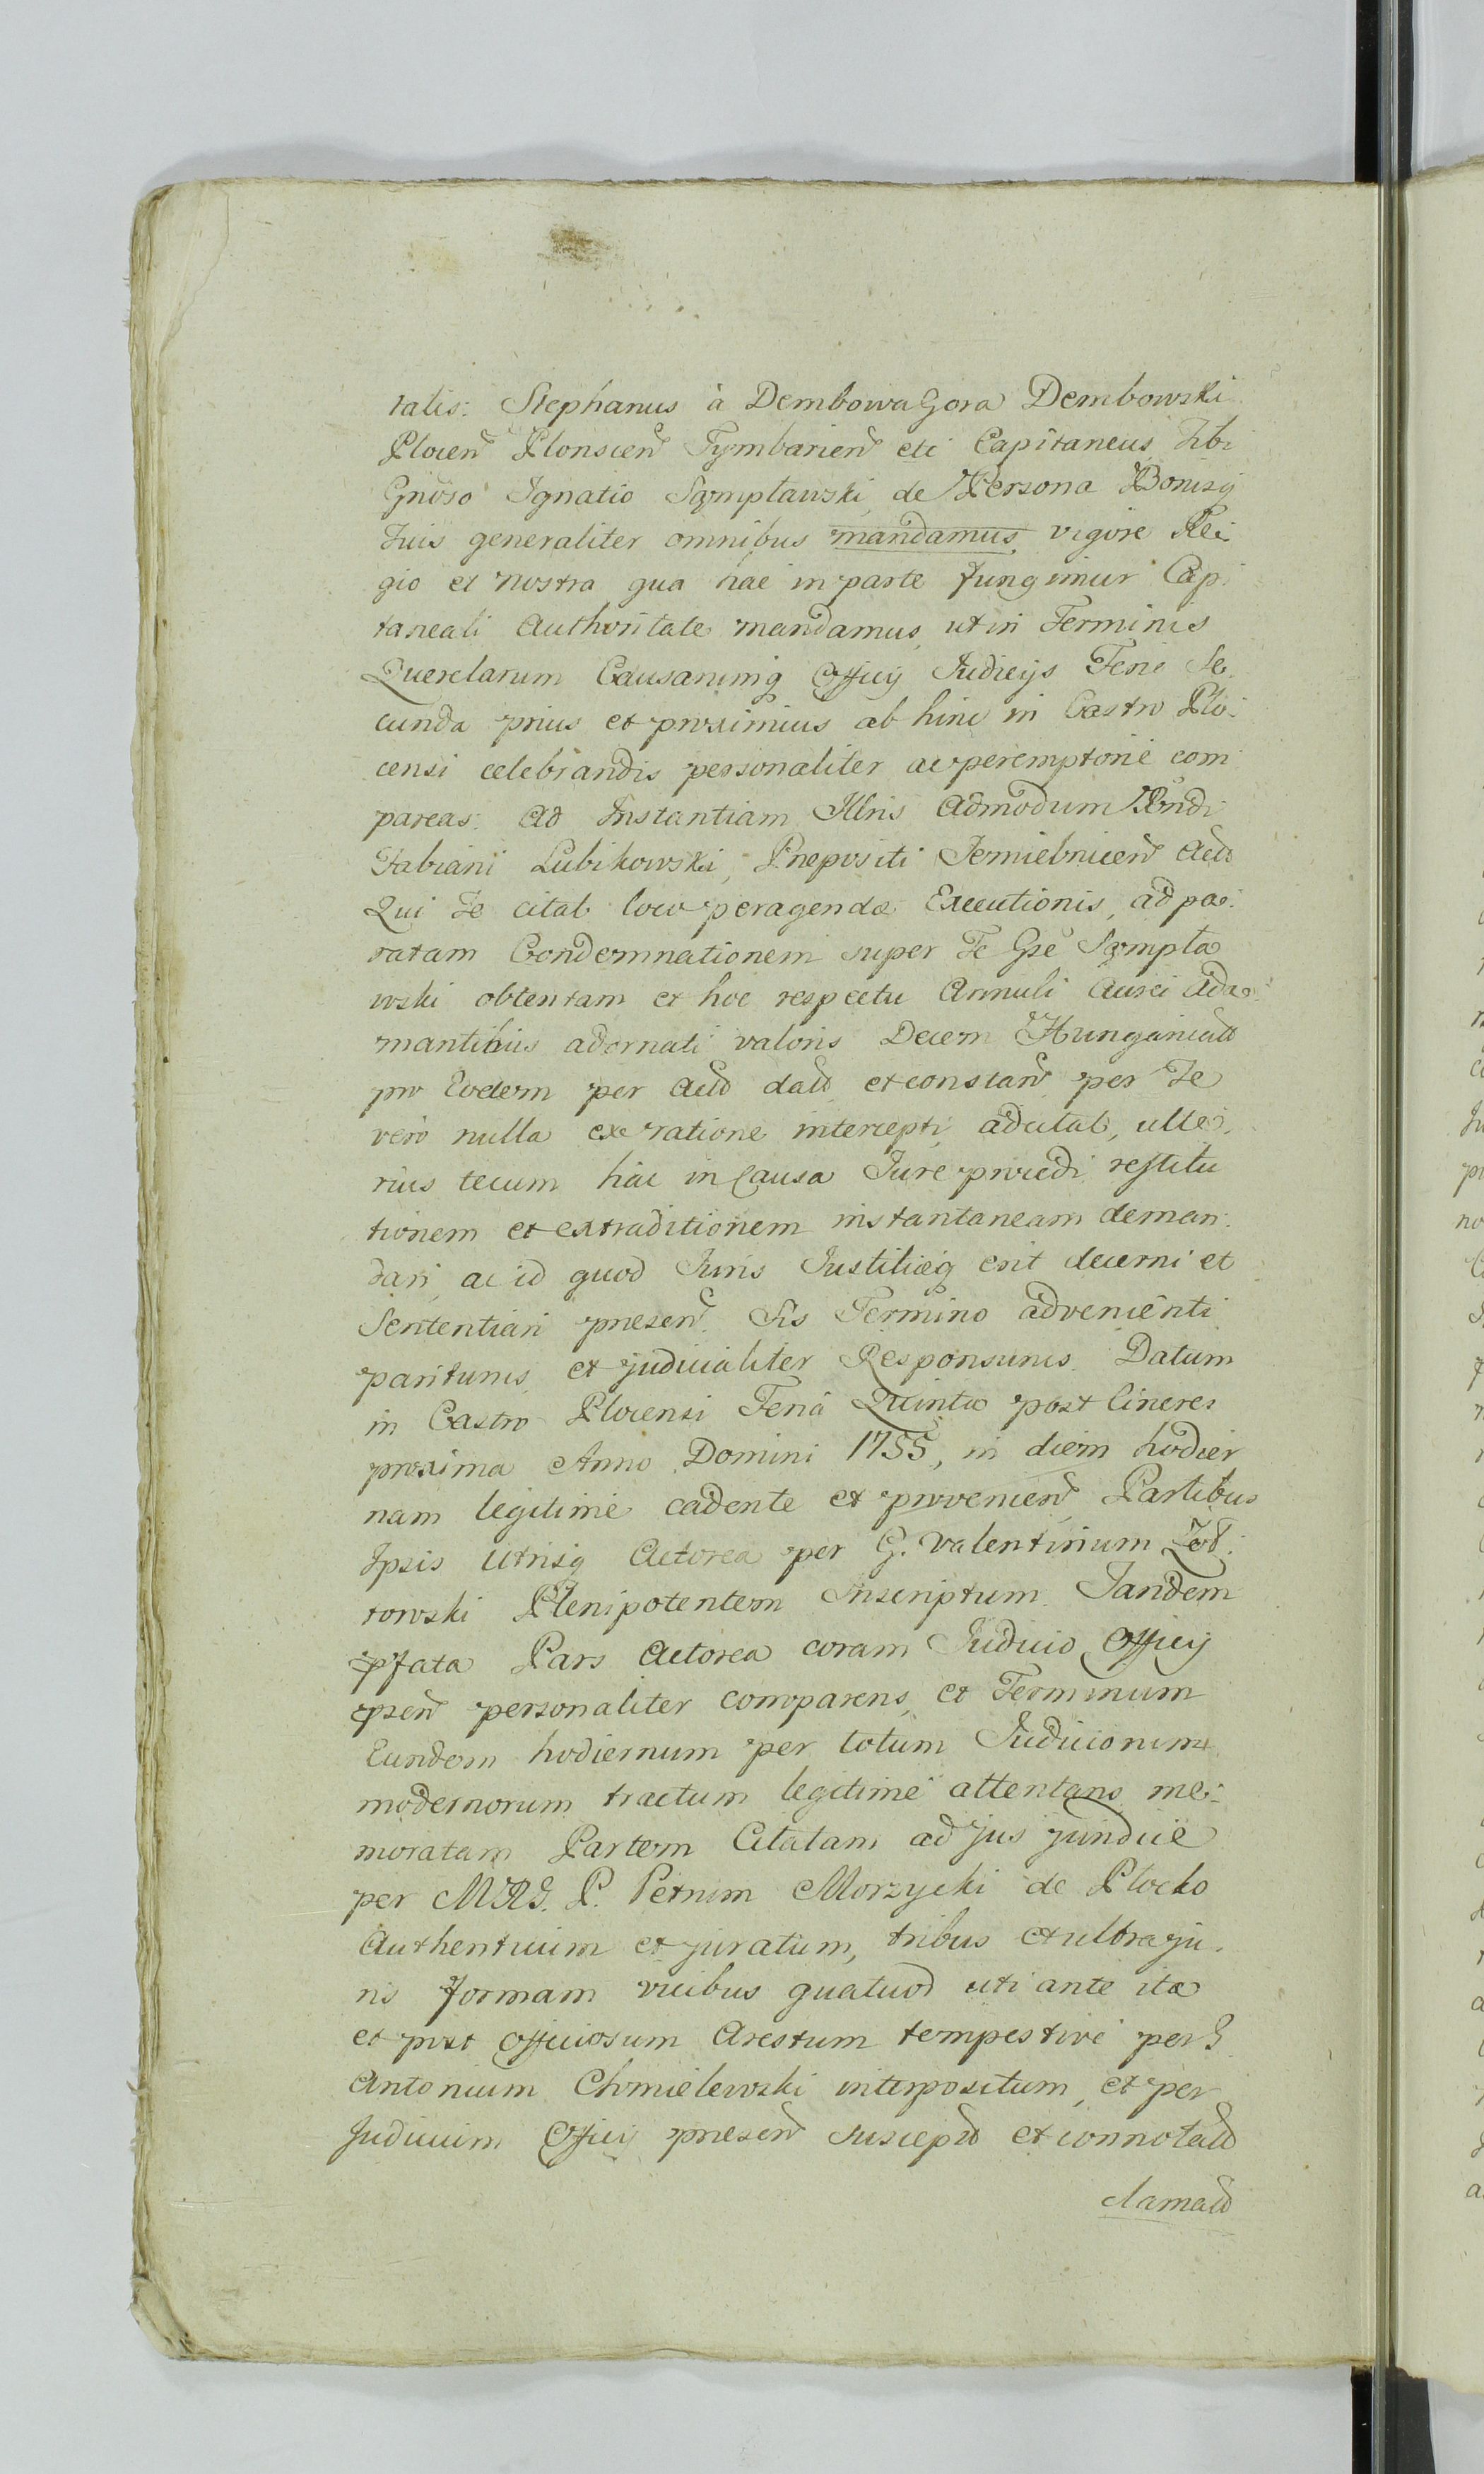 talis. Stephanus à Dembowagora Dembowski
Plocen Plonscen Tymbarien etc Capitaneus Tibi
Gnoso Ignatio Sąmpławski de Persona Bonisq
Tuis generaliter omnibus mandamus vigore Re-
gio et nostra qua hac in parte fungimur Capi
taneali Authoritate mandamus, ut in Terminis
Querelarum Causarumq Officij Judicijs Feria Se-
cunda prius et proximius ab hinc in Castro Plo-
censi celebrandis personaliter ac peremptorie com
pareas. Ad Instantiam Illris Admodum Rndi
Fabiani Lubikowski, Prepositi Actt
Qui Te citat loco peragendæ Executionis, ad pa-
ratam Condemnationem super Te Gse Sąmpła
wski obtentam et hoc respectu Annuli Aurei Ada-
mantibus adornati valoris Decem Hungaricatt
pro Eodem per Actt datt et constan per Te
vero nulla ex ratione intercepti adcitat, ulte-
rius tecum hac in Causa Jure procedi restitu
tionem et extraditionem instantaneam deman-
dari, ac id quod Juris Justitiæq erit decerni et
Sententiari presen. Sis Termino advenienti
pariturus et judicialiter Responsurus. Datum
in Castro Plocensi Feria Quinta post Cineres
proxima Anno Domini 1755, in diem hodier
nam legitimè cadente et provenien Partibus
Ipsis Utrisq Actorea per G. Valentinum
towski Plenipotentem Inscriptum. Tandem
pfata Pars Actorea coram Judicio Officij
psen personaliter comparens, et Terminum
Eundem hodiernum per totum Judiciorum
modernorum tractum legitimè attentans me-
moratam Partem Citatam ad jus jundice
per MRG. P. Petrum Morzycki de Plocko
Authenticum et juratum, tribus et ultra ju-
ris formam vicibus quatuor uti ante ita
et post Officiosum Arestum tempestivè per G
Antonium Chmielewski interpositum, et per
Judicium Officij presen suscept et connotatt
clamatt